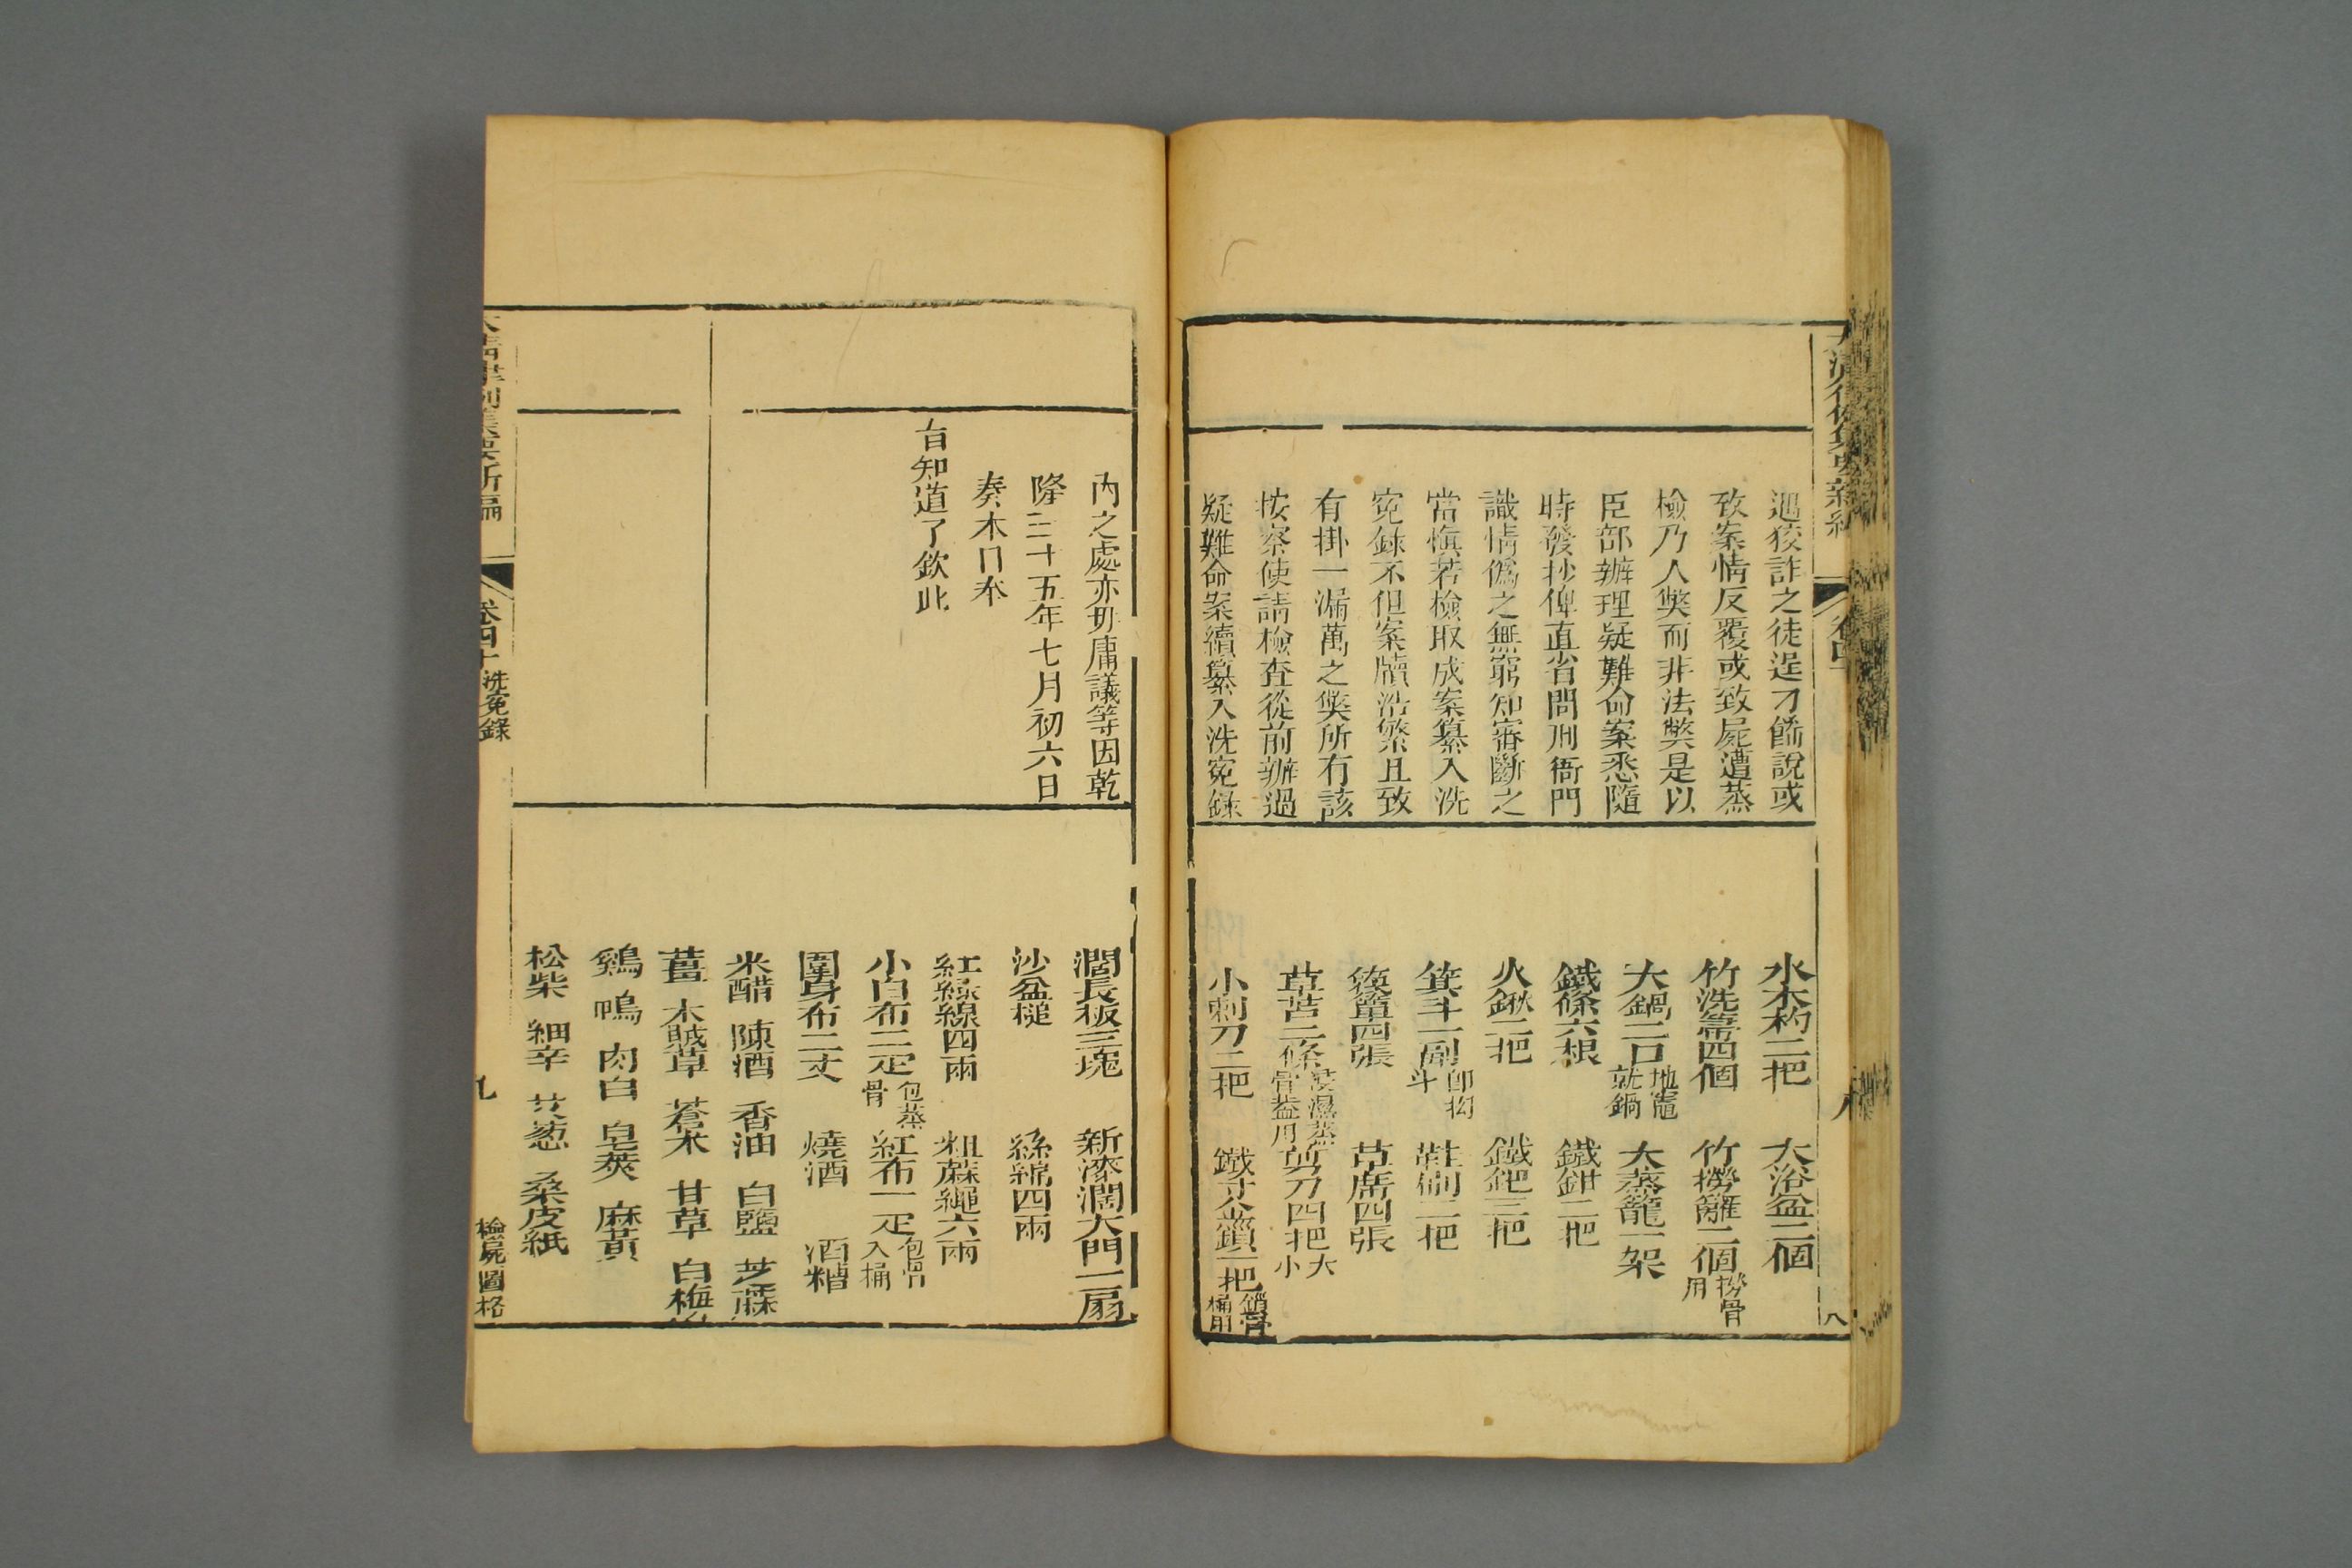 大清律例集要新編
卷四十
八
遇狡詐之徒逞刁飾說或
致案情反覆或致屍遭蒸
檢乃人獘而非法獘是以
臣部辦理疑難命案悉隨
時發抄俾直省問刑衙門
識情僞之無窮知審斷之
當愼若檢取成案纂入洗
寃錄不但案牘浩繁且致
有掛一漏萬之獘所有該
按察使請檢查從前辦過
疑難命案續纂入洗寃錄
水木杓二把 大浴盆二個
竹洗箒四個 竹撈籬二個撈骨用
大鍋二口地竈就鍋 大蒸籠一架
鐵條六根 鐵鉗二把
火鍬二把 鐵鈀三把
箕斗一副卽抝斗 鞋刷二把
篾簟四張 草席四張
草苫二條浸濕蒸骨葢用 剪刀四把大小
小刺刀二把 鐵寸金鎖一把鎖骨桶用
內之處亦毋庸議等因乾
隆三十五年七月初六日
奏本日奉
旨知道了欽此
濶長板三塊 新漆濶大門一扇
沙盆槌 絲綿四兩
紅綠線四兩 粗蔴繩六兩
小白布二疋包蒸骨 紅布一疋包骨入桶
圍身布二丈 燒酒 酒糟
米醋 陳酒 香油 白鹽 芝蔴
薑 木賊草 蒼朮 甘草 白梅
鷄 鴨 肉白 皂莢 麻黃
松柴 細辛 艾葱 桑皮紙
大清律例集要新編
卷四十 洗冤錄
九
檢屍圖格